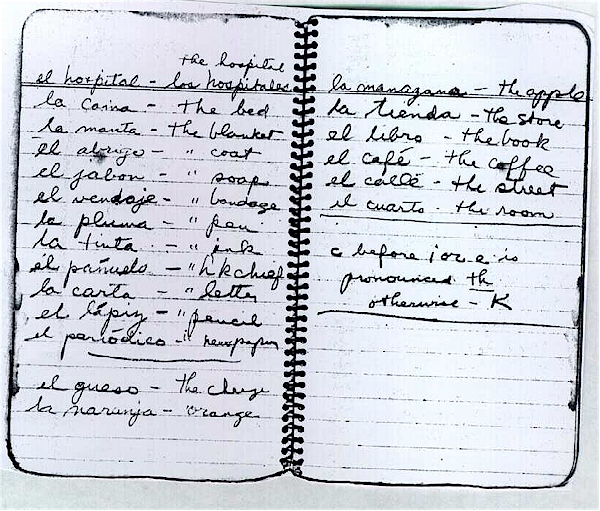 the hospital
el hospital - los hospitales
la cama - the bed
la manta - the blanket
el abrigo - " coat
el jabon - " soap
el vendaje - " bandage
la pluma - " pen
la tinta - " ink
el pañuelo - " hkchief
la carta - " letter
el lápiz - " pencil
el periódico - " newspaper
el queso - the cheese
la naranja - " orange
la manazana - the apple
la tienda - the store
el libro - the book
el café - the coffee
el calle - the street
el cuarto - the room
c before i or e is
pronounced th
otherwise - K